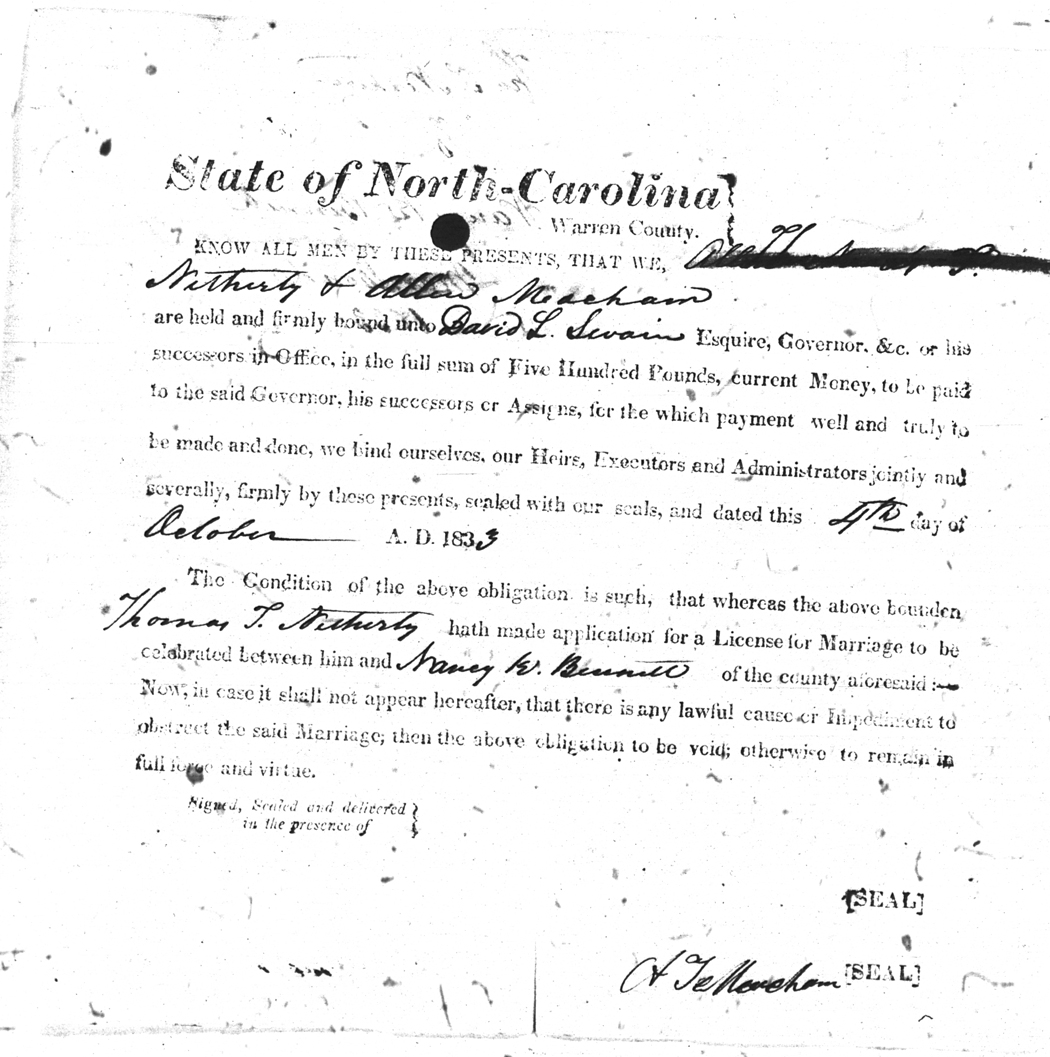 State of North-Carolina
Warren County.
KNOW ALL MEN BY THESE PRESENTS, THAT WE,
Netherty & Allen Meacham
are held and firmly bound unto David L. Swain Esquire, Governor, &c. or his
successors in Office, in the full sum of Five Hundred Pounds, current Money, to be paid
to the said Governor, his successors or Assigns, for the which payment well and truly to
be made and done, we bind ourselves, our Heirs, Executors and Administrators jointly and
severally, firmly by these presents, sealed with our seals, and dated this 4th day of
October A. D. 1833
The Condition of the above obligation is such, that whereas the above bounden
Thomas T. Netherty hath made application for a License for Marriage to be
celebrated between him and Nancy W. Bennett of the county aforesaid :—
Now, in case it shall not appear hereafter, that there is any lawful cause or Impediment to
obstruct the said Marriage; then the above obligation to be void; otherwise to remain in
full force and virtue.
Signed, Sealed and delivered
in the presence of
[SEAL]
Meacham [SEAL]